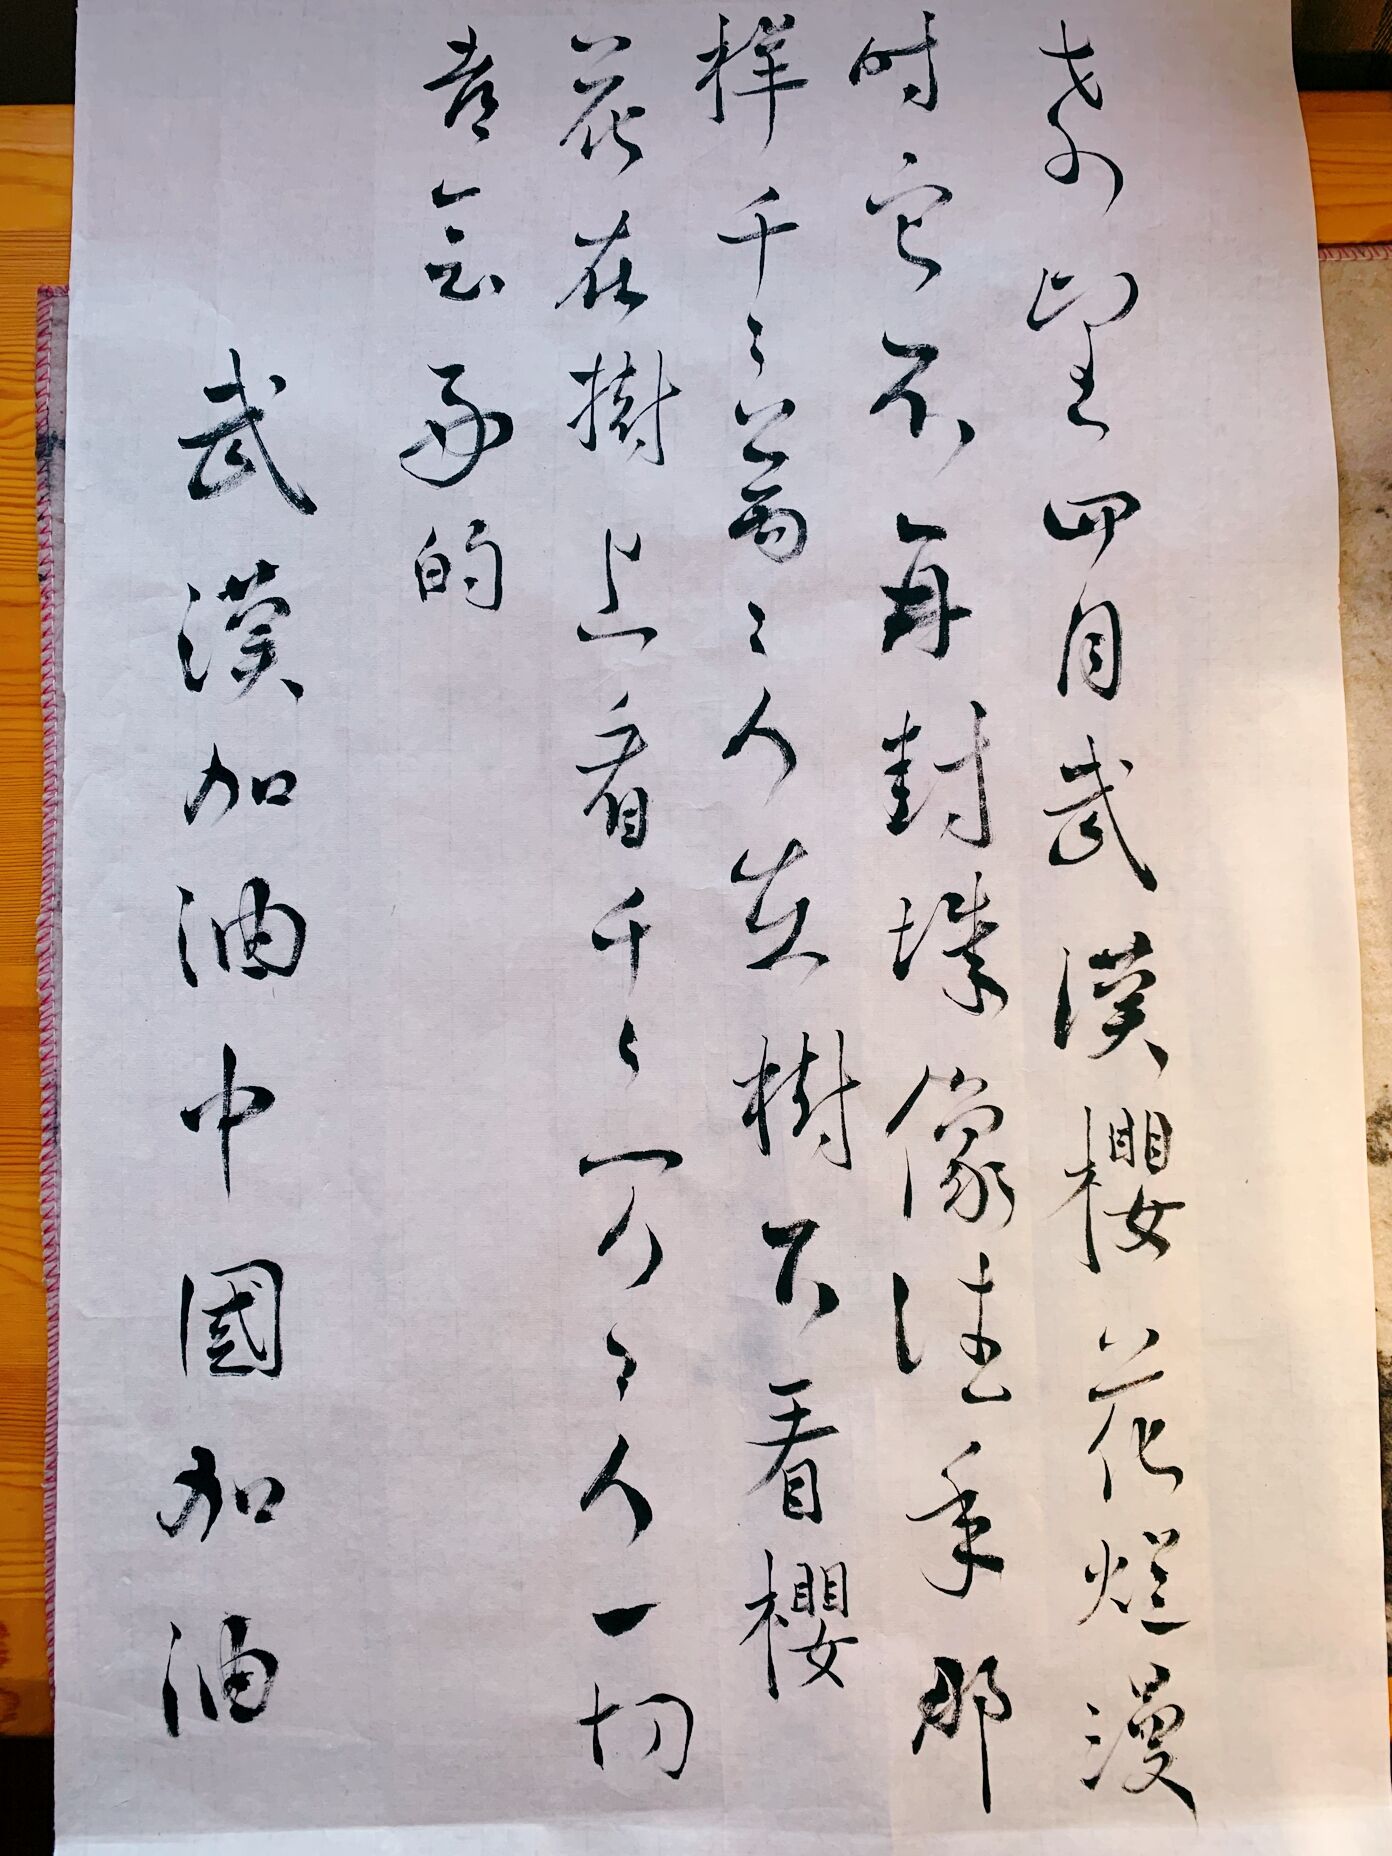 希望四月武漢櫻花烂漫
时它不再封城像往年那
样千々萬々人在樹下看櫻
花在樹上看千々万々人一切
都会好的
武漢加油中國加油